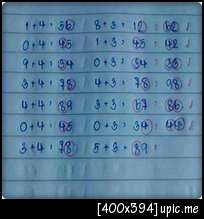 1+4 : 56 8+3 : 12 : 62
0+4 : 45 1+3 : 45 : 42
9+4 : 34 0+3 : 34 : 36
3+4 : 78 4+3 : 78 : 98
4+4 : 89 3+3 : 67 : 86
0+4 : 45 0+3 : 34 : 44
3+4 : 78 5+3 : 89 :
[400x394]upic.me